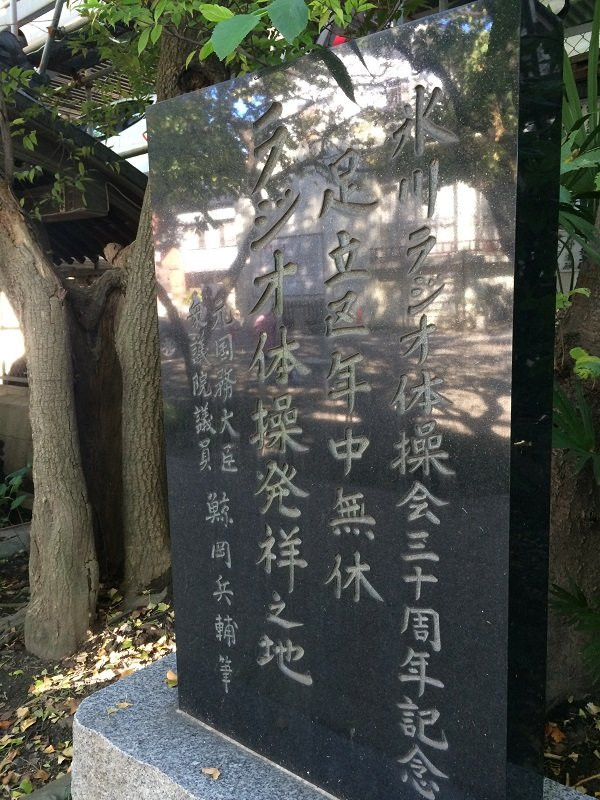 氷川ラジオ体操会三十周年記念
足立区年中無休
ラジオ体操発祥之地
元国務大臣
衆議院議員
鯨岡兵輔筆